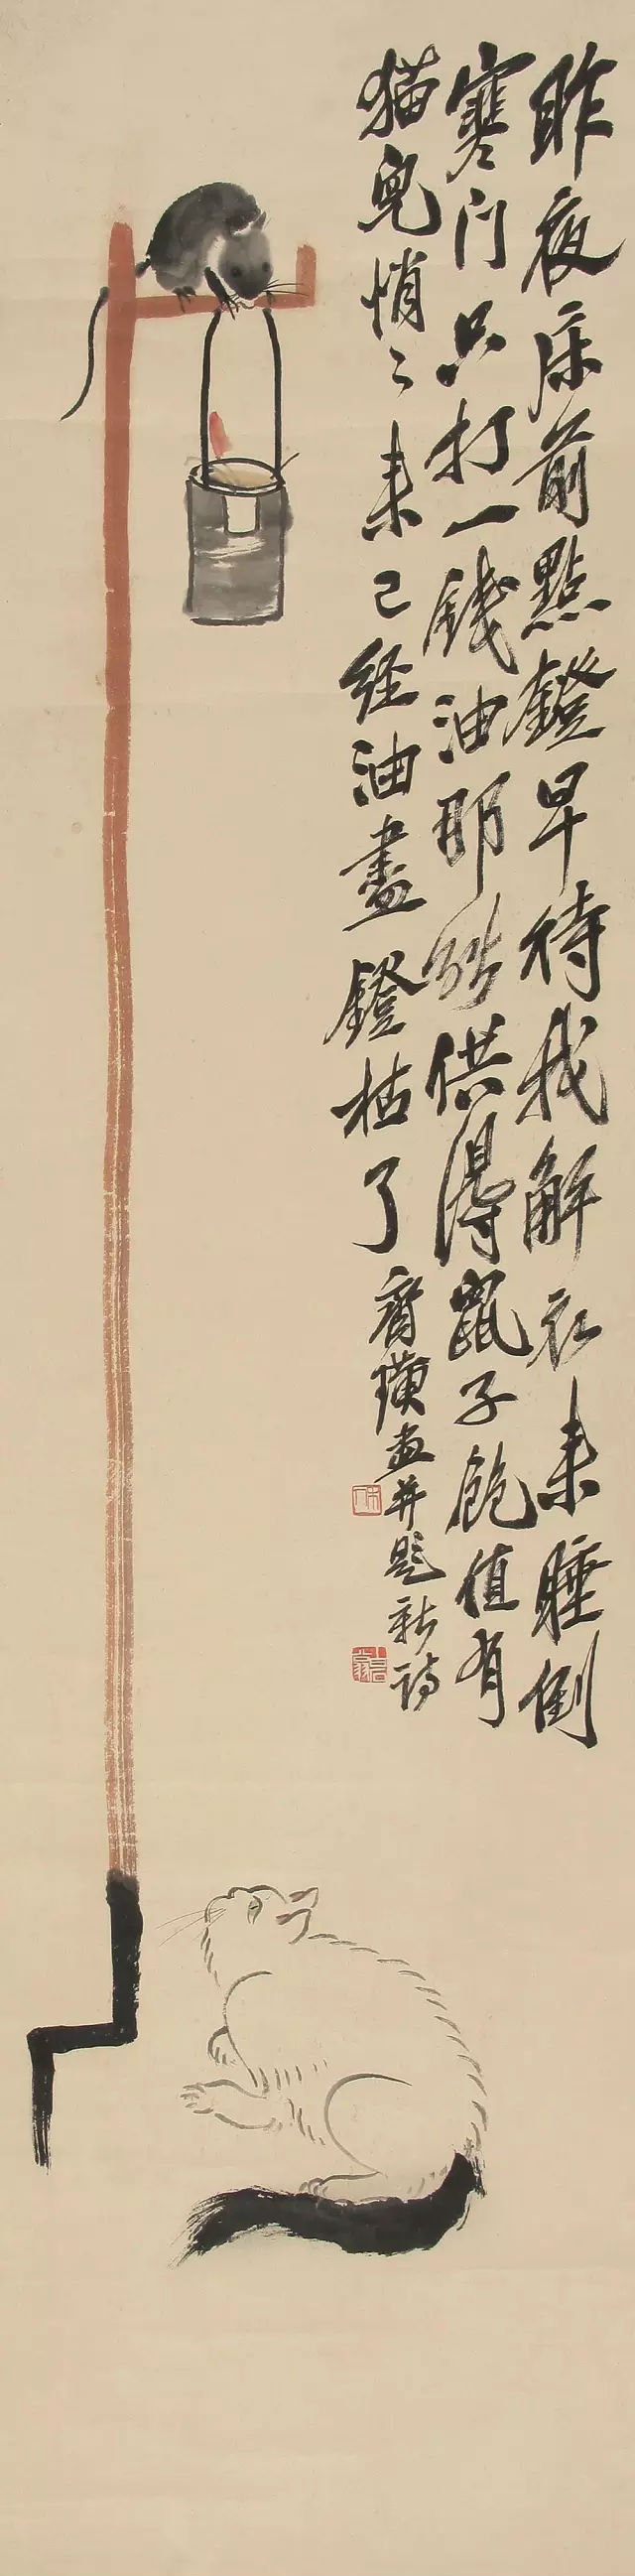 昨夜床前點鐙早待我解衣来睡倒
寒门只打一錢油那能供得鼠子飽值有
猫兒悄〻来已經油盡鐙枯了
齊璜畫并題新詩